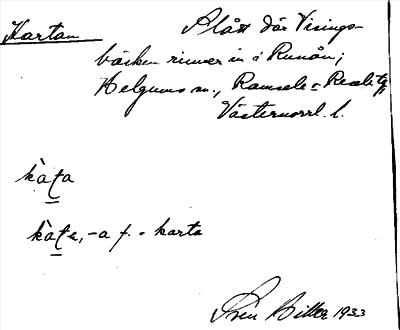 Kartan
Slått där Visings-
bäcken rinner in i Runån;
Helgums sn., Ramsele o Resele tg
Västernorrl. l.
kàt̯a
kàt̯a, -a f. = karta
1933